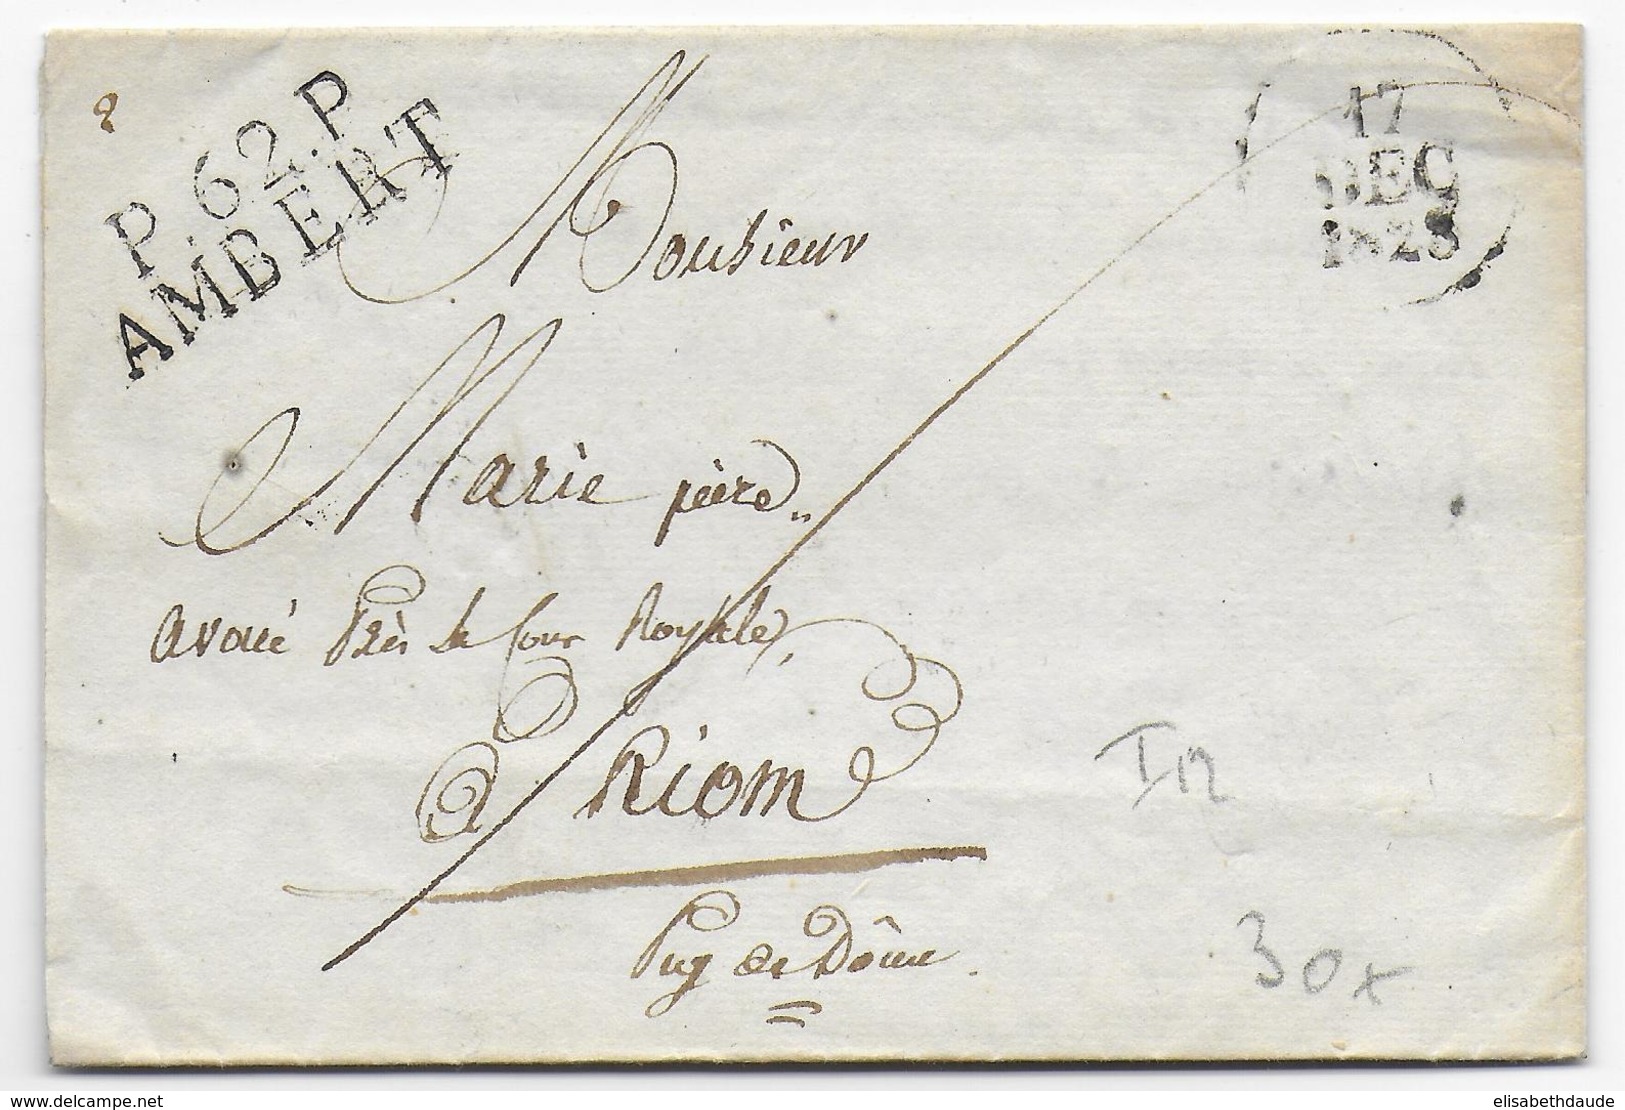 P.62.P
AMBERT
17
DEC
1828
Monsieur
Marie père
avoué Près la Cour Royale,
a Riom
Puy de Dôme
30x
delcampe.net
elisabethdaude